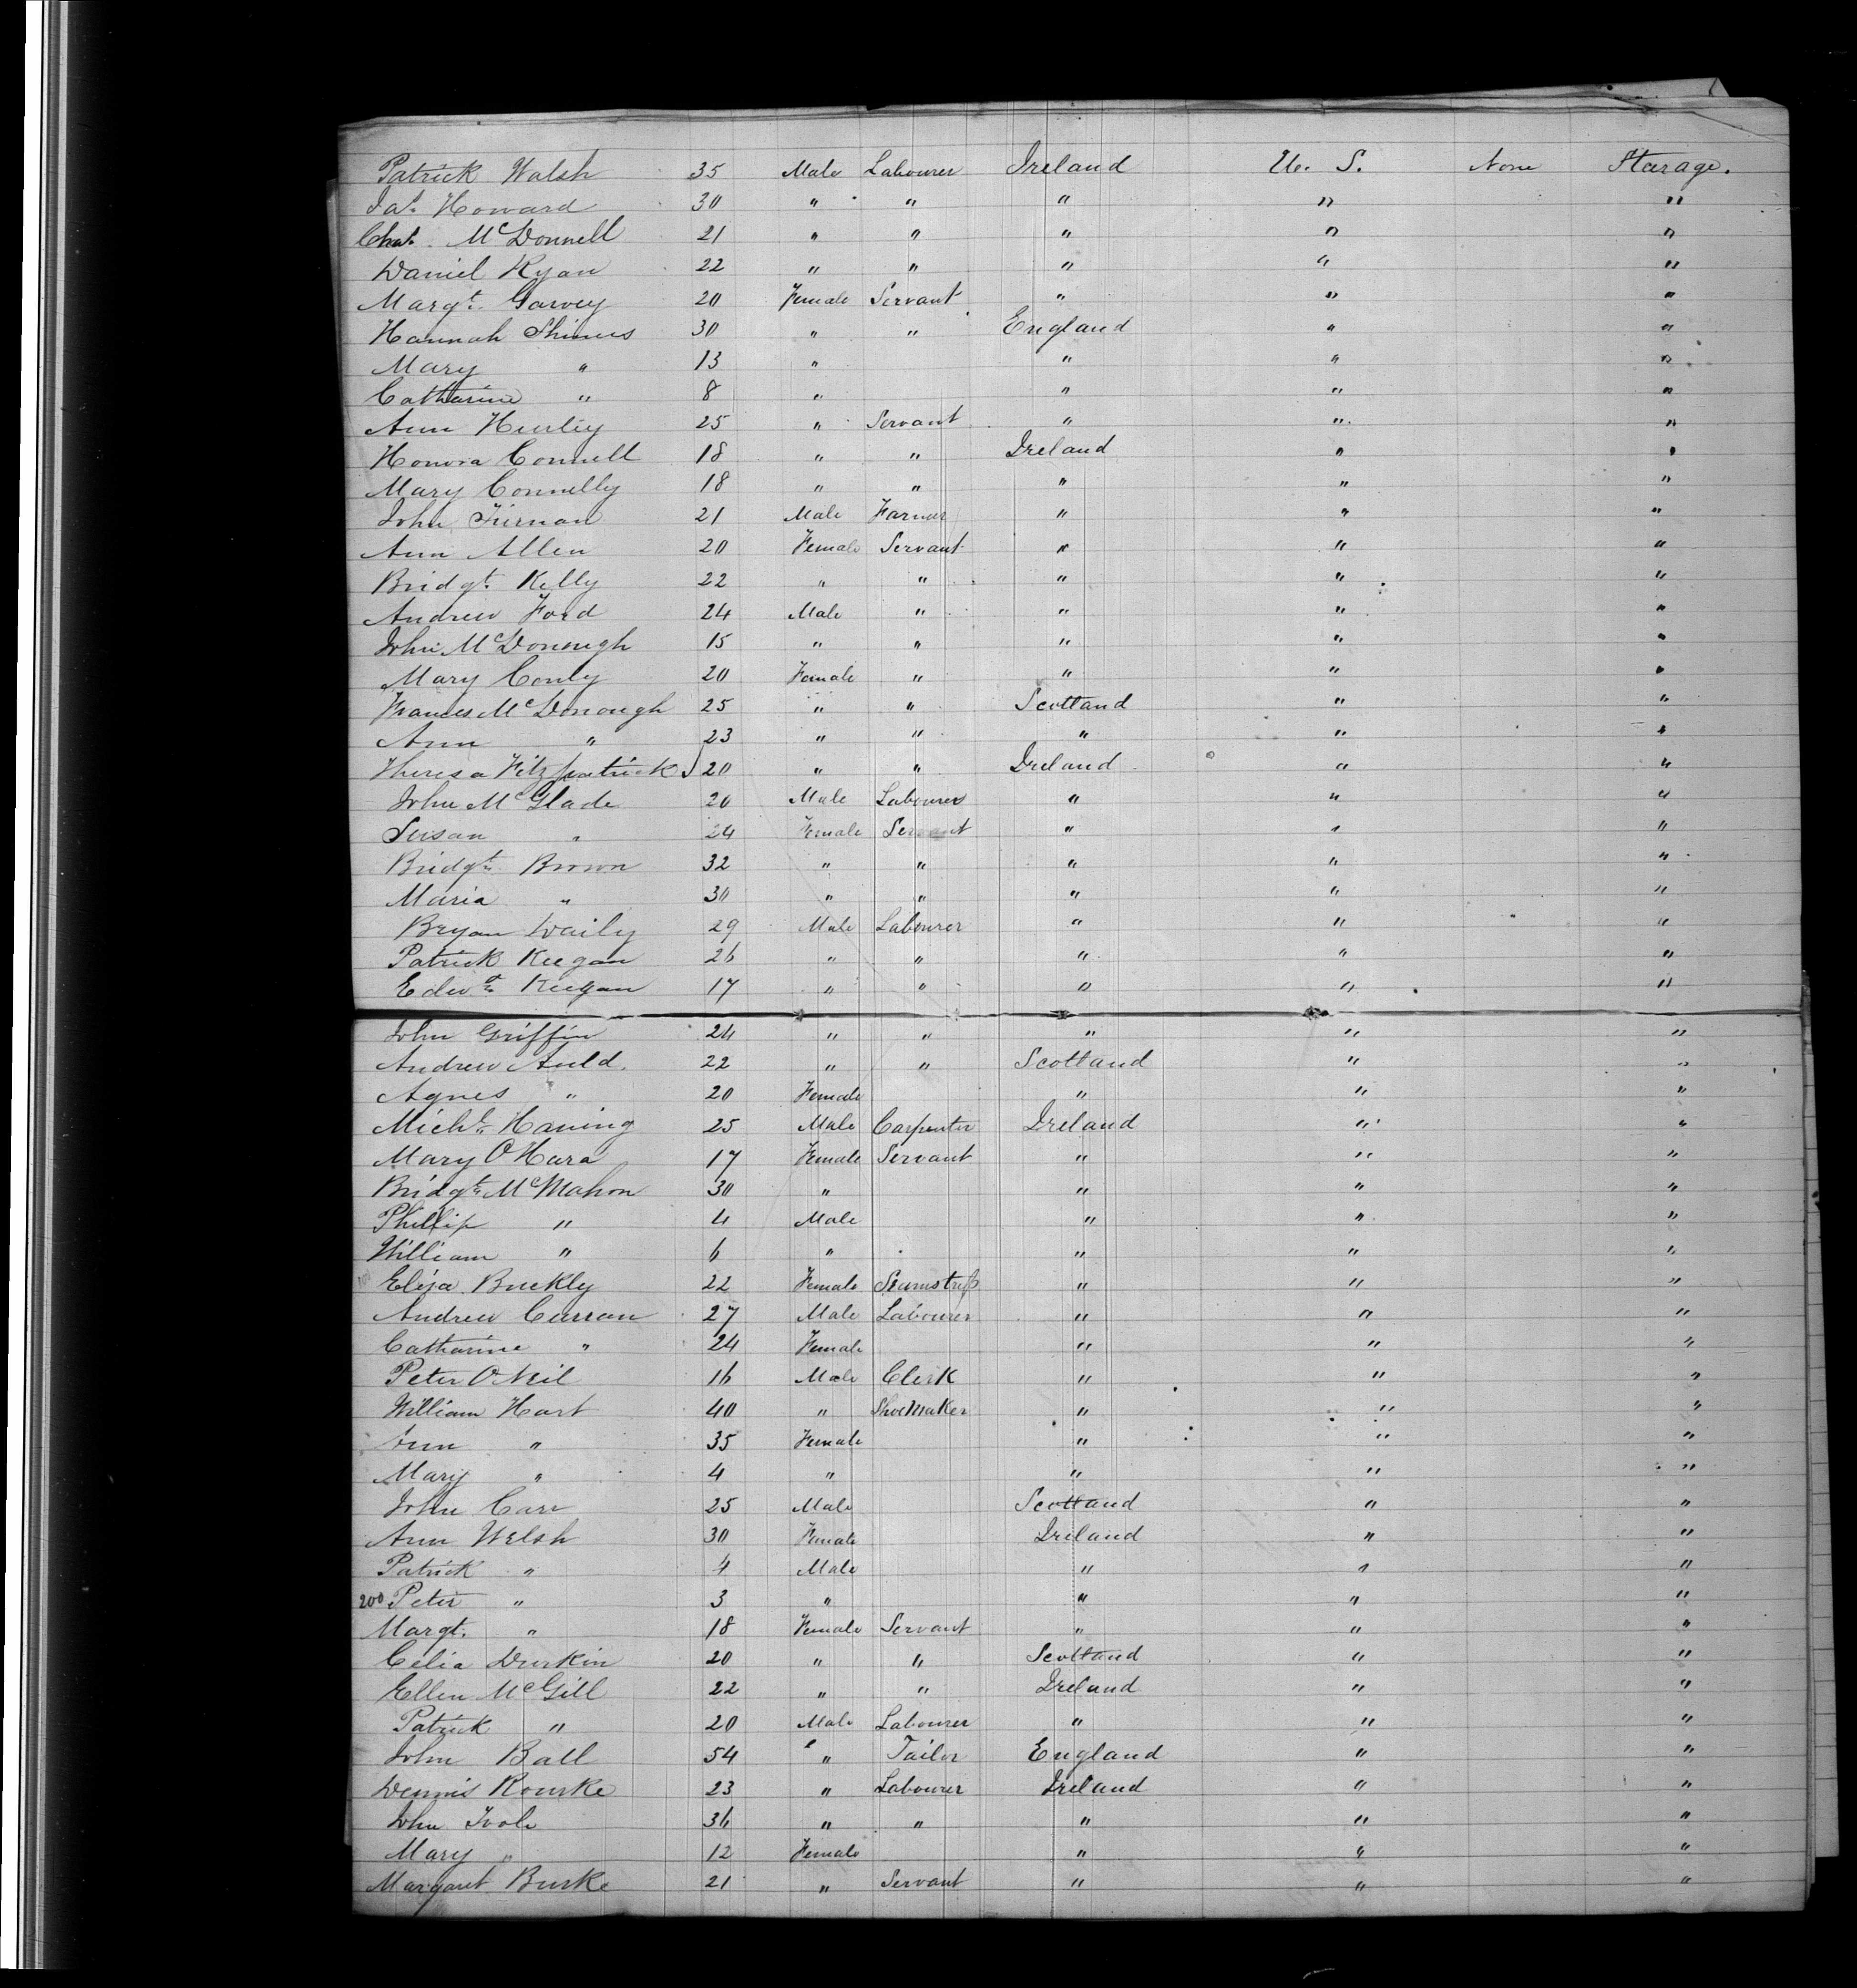 Patrick Walsh 35 Male Labourer Ireland U. S. None Starage.
Jas. Howard 30 " " " " "
Chas. McDonnell 21 " " " " "
Daniel Ryan 22 " " " " "
Margt. Garvey 20 Female Servant " " "
Hannah Shinus 30 " " England " "
Mary " 13 " " " "
Catharine " 8 " " " "
Ann Hurley 25 " Servant " " "
Honora Connell 18 " " Ireland " "
Mary Connelly 18 " " " " "
John Tiernan 21 Male Farmer " " "
Ann Allen 20 Female Servant " " "
Bridgt. Kelly 22 " " " " "
Andrew Ford 24 Male " " " "
John McDonough 15 " " " " "
Mary Conly 20 Female " " " "
Frances McDonough 25 " " Scotland " "
Ann " 23 " " " " "
Theresa Fitzpatrick 20 " " Ireland " "
John McGlade 20 Male Labourer " " "
Susan " 24 Female Servant " " "
Bridgt. Brown 32 " " " " "
Maria " 30 " " " " "
Bryan Daily 29 Male Labourer " " "
Patrick Keegan 26 " " " " "
Edwd. Keegan 17 " " " " "
John Griffin 24 " " " " "
Andrew Auld. 22 " " Scotland " "
Agnes " 20 Female " " "
Michl. Haning 25 Male Carpenter Ireland " "
Mary O'Hara 17 Female Servant " " "
Bridgt. McMahon 30 " " " "
Phillip " 4 Male " " "
William " 6 " " " "
Eliza Buckly 22 Female Seamstress " " "
Andrew Curran 27 Male Labourer " " "
Catharine " 24 Female " " "
Peter O'Neil 16 Male Clerk " " "
William Hart 40 " ShoeMaker " " "
Ann " 35 Female " " "
Mary " 4 " " " "
John Carr 25 Male Scotland " "
Ann Welsh 30 Female Ireland " "
Patrick " 4 Male " " "
200 Peter " 3 " " " "
Margt. " 18 Female Servant " " "
Celia Durkin 20 " " Scotland " "
Ellen McGill 22 " " Ireland " "
Patrick " 20 Male Labourer " " "
John Ball 54 " Tailor England " "
Dennis Rourke 23 " Labourer Ireland " "
John Toole 36 " " " " "
Mary " 12 Female " " "
Margaret Burke 21 " Servant " " "